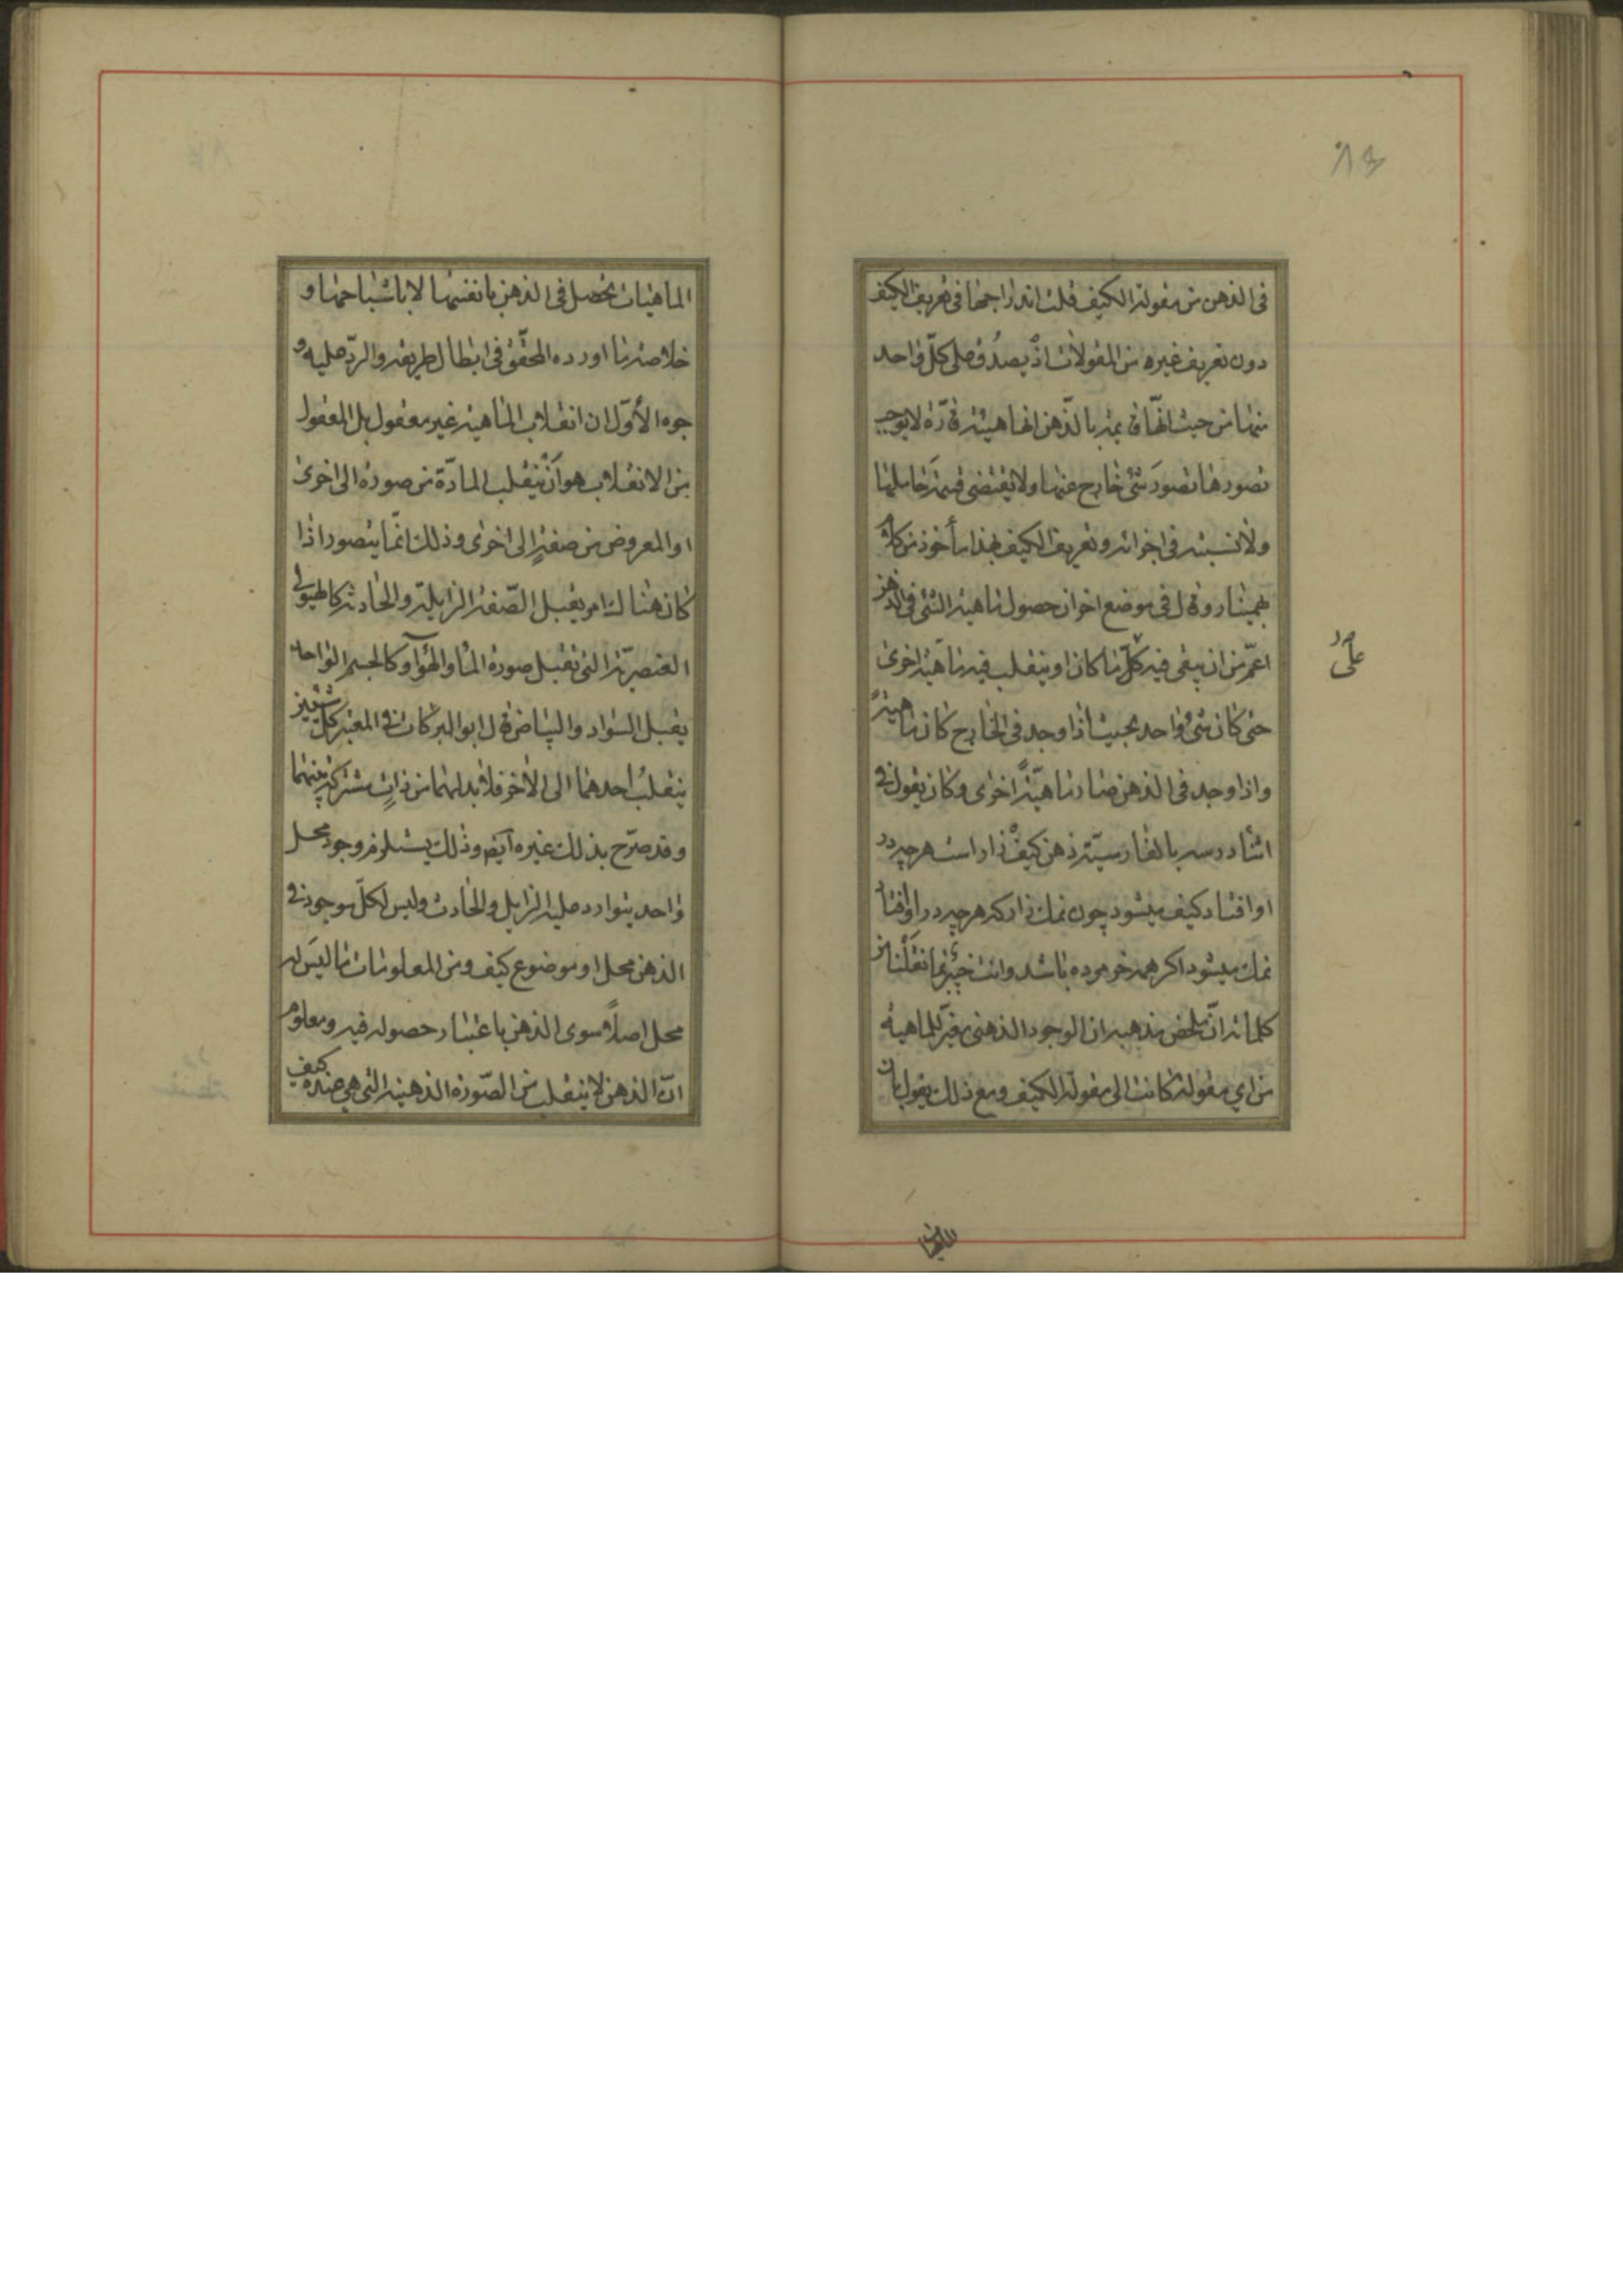 ٨٣
فى الذهن من مقولة الكيف قلت اندراجها فى تعريف الكيف
دون تعريف غيره من المقولات اذ يصدق على كلّ واحد
منها من حيث انّها قائمة بالذّهن انها هيئة قارّة لا يوجب
تصورها تصوّر شئ خارج عنها ولا يقتضى قسمة حاملها
ولا نسبته فى اجزائه وتعريف الكيف بهذا مأخوذ من كلام
بهمنيار وقال فى موضع اخر ان حصول ماهية الشئ فى الذهن
اعمّ من ان يبقى فيه كلّ ما كان او ينقلب فيه ماهية اخرى
على
حتى كان شئ واحد بحيث اذا وجد فى الخارج كان ماهيةً
واذا وجد فى الذهن صار ماهيّةً اخرى وكان يقول فى
اثناء درسه بالفارسيّة ذهن كيف زار است هر چه در
او افتاد كيف ميشود چون نمك زار كه هر چه در او افتاد
نمك ميشود اكر همه خر مرده باشد وانت خبير بما نقلنا من
كلماته انّ ملخص مذهبه ان الوجود الذهنى مغيّر للماهية
من اي مقولة كانت الى مقولة الكيف ومع ذلك يقول بان
الماهيات تحصل فى الذهن بانفسها لا باشباحها و
خلاصة ما اورده المحقّق فى ابطال طريقه والردّ عليه و
جوه الأوّل ان انقلاب الماهية غير معقول بل المعقول
من الانقلاب هو أن ينقلب المادّة من صورة الى اخرى
او المعروض من صفةٍ الى اخرى وذلك انّما يتصور اذا
كان هناك امر يقبل الصّفة الزايلة والحادثة كالهيولى
العنصريّة التى تقبل صورة الماء والهواء وكالجسم الواحد
يقبل السواد والبياض قال ابو البركات فى المعتبر كل شيئين
ينقلب احدهما الى الاخر فلابد لهما من ذاتٍ مشتركة بينهما
وقد صرّح بذلك غيره ايضا وذلك يستلزم وجود محل
واحد يتوارد عليه الزايل والحادث وليس لكلّ موجود فى
الذهن محل او موضوع كيف ومن المعلومات ما ليس له
محل اصلاً سوى الذهن باعتبار حصوله فيه ومعلوم
انّ الذهن لا ينقلب من الصّورة الذهنية التى هى عنده كيف
الماهيات